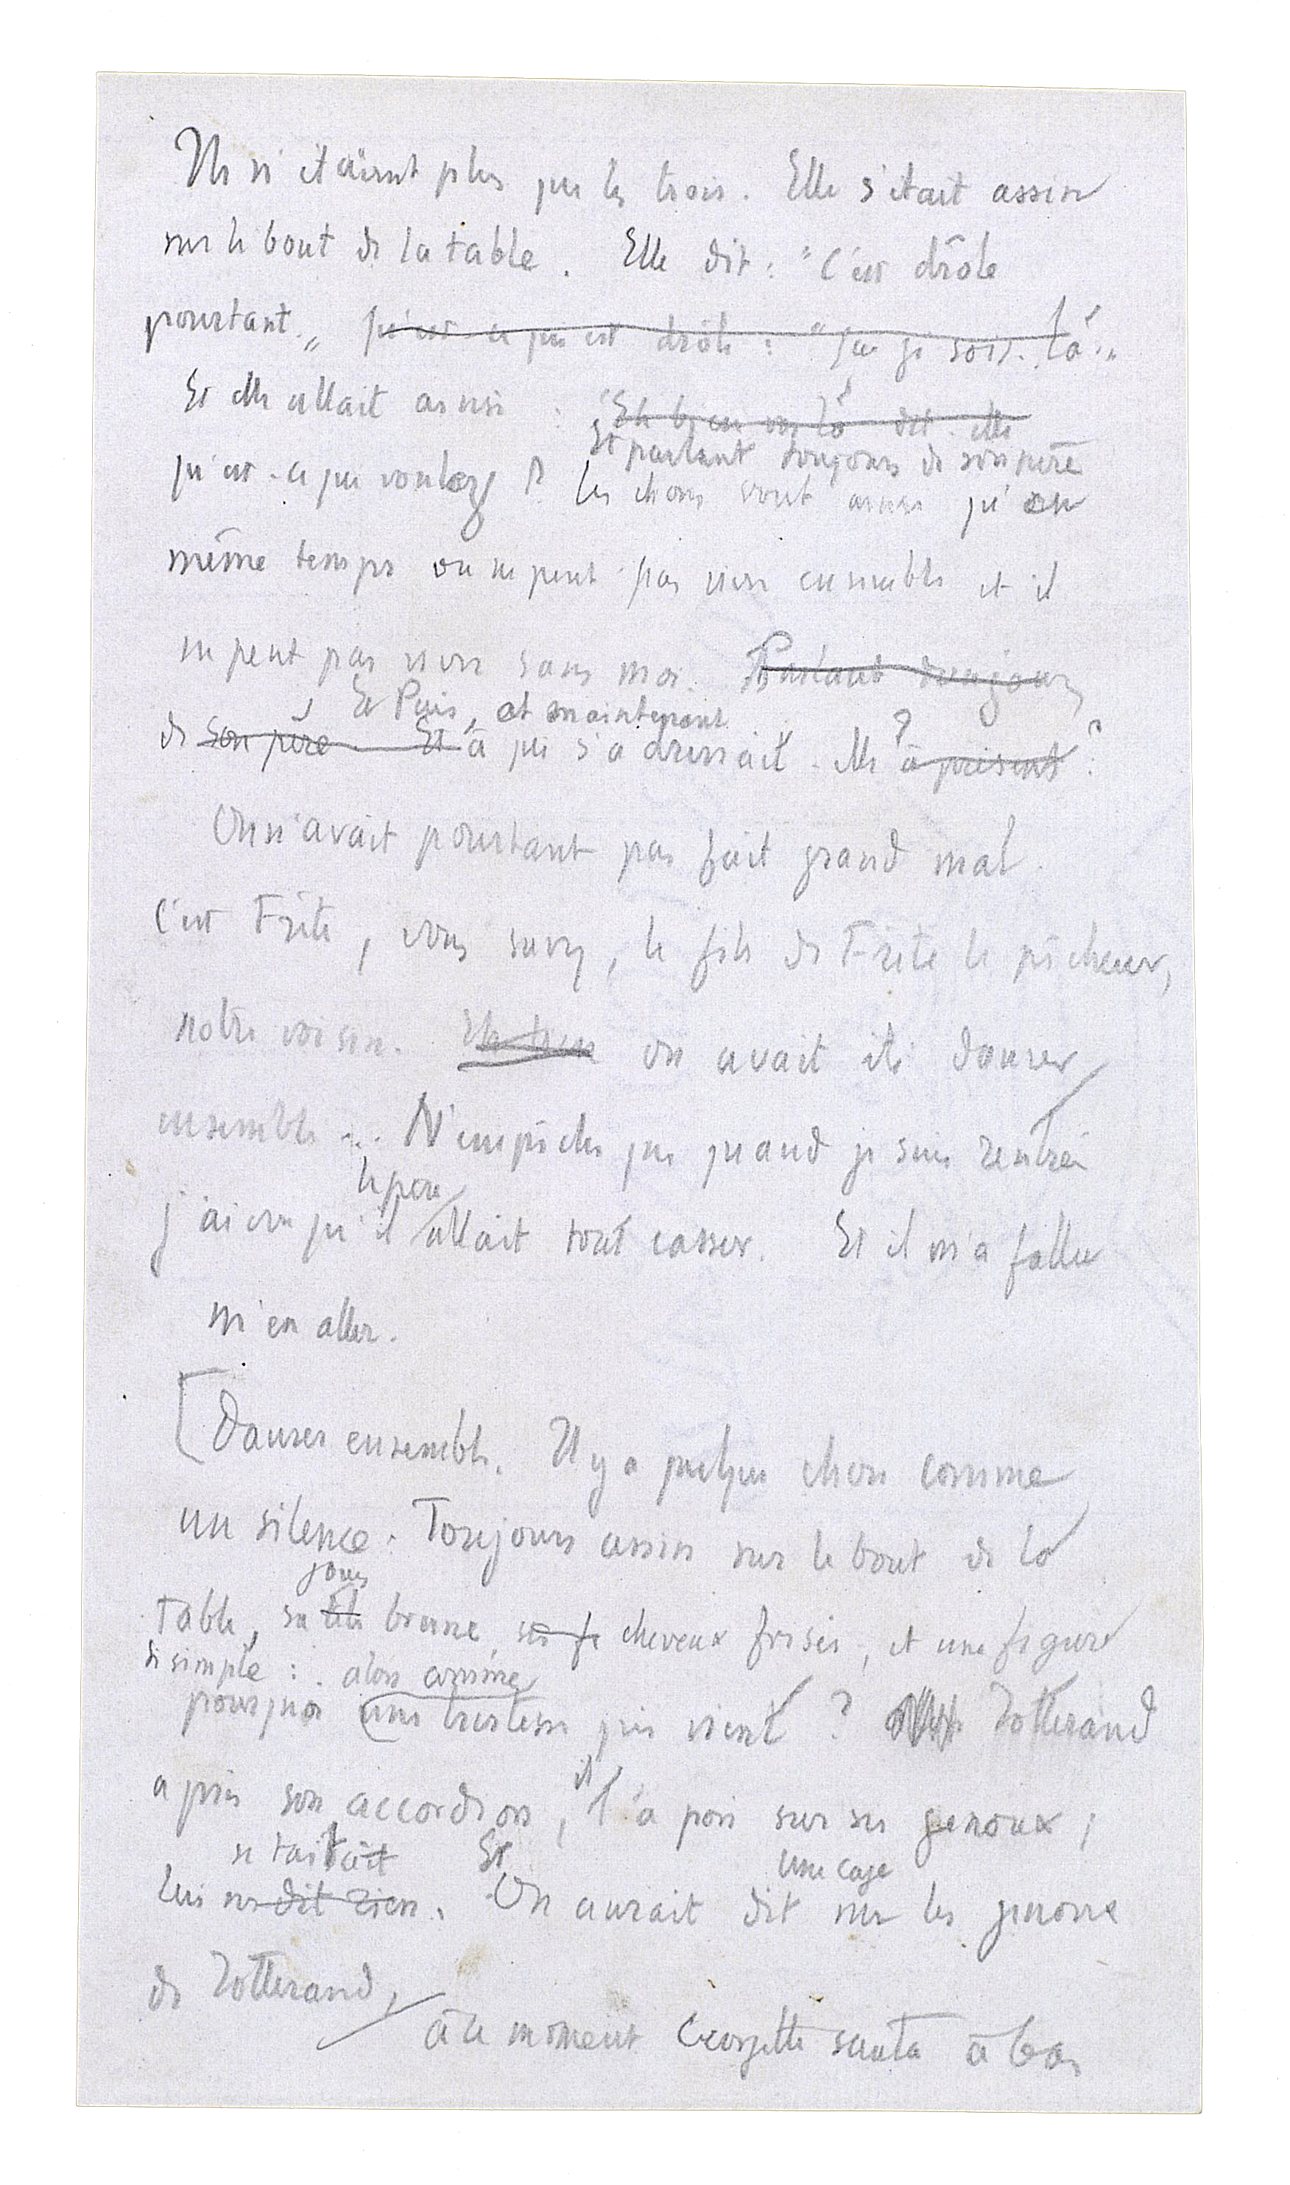 Ils n'étaient plus que les trois. Elle s'était assise
sur le bout de la table. Elle dit : "C'est drôle
pourtant." Qu'est-ce qui est drôle : "Que je sois là."
Et elle allait ainsi : "Eh bien voilà dit-elle
Et parlant toujours de son père
qu'est-ce que vous voulez ? les choses sont ainsi qu'en
même temps on ne peut pas vivre ensemble et il
ne peut pas vivre sans moi. Parlant toujours
Et Puis, et maintenant
de son père. Et à qui s'adressait-elle ? à présent ?
On n'avait pourtant pas fait grand mal.
C'est Frète, vous savez, le fils de Frète le pêcheur,
notre voisin. Eh bien on avait été danser
ensemble ... N'empêche que quand je suis rentrée
le père
j'ai cru qu'il allait tout casser. Et il m'a fallu
m'en aller.
[Danser ensemble. Il y a quelque chose comme
un silence. Toujours assise sur le bout de la
joues
table, sa brune, ses cheveux frisés, et une figure
si simple : alors comme
pourquoi une tristesse qui vient ? Rotterand
a pris son accordéon, il l'a pris sur ses genoux ;
se taisait Et une cage
lui ne dit rien. On aurait dit sur les genoux
de Rotterand,
à ce moment Georgette sauta à bas